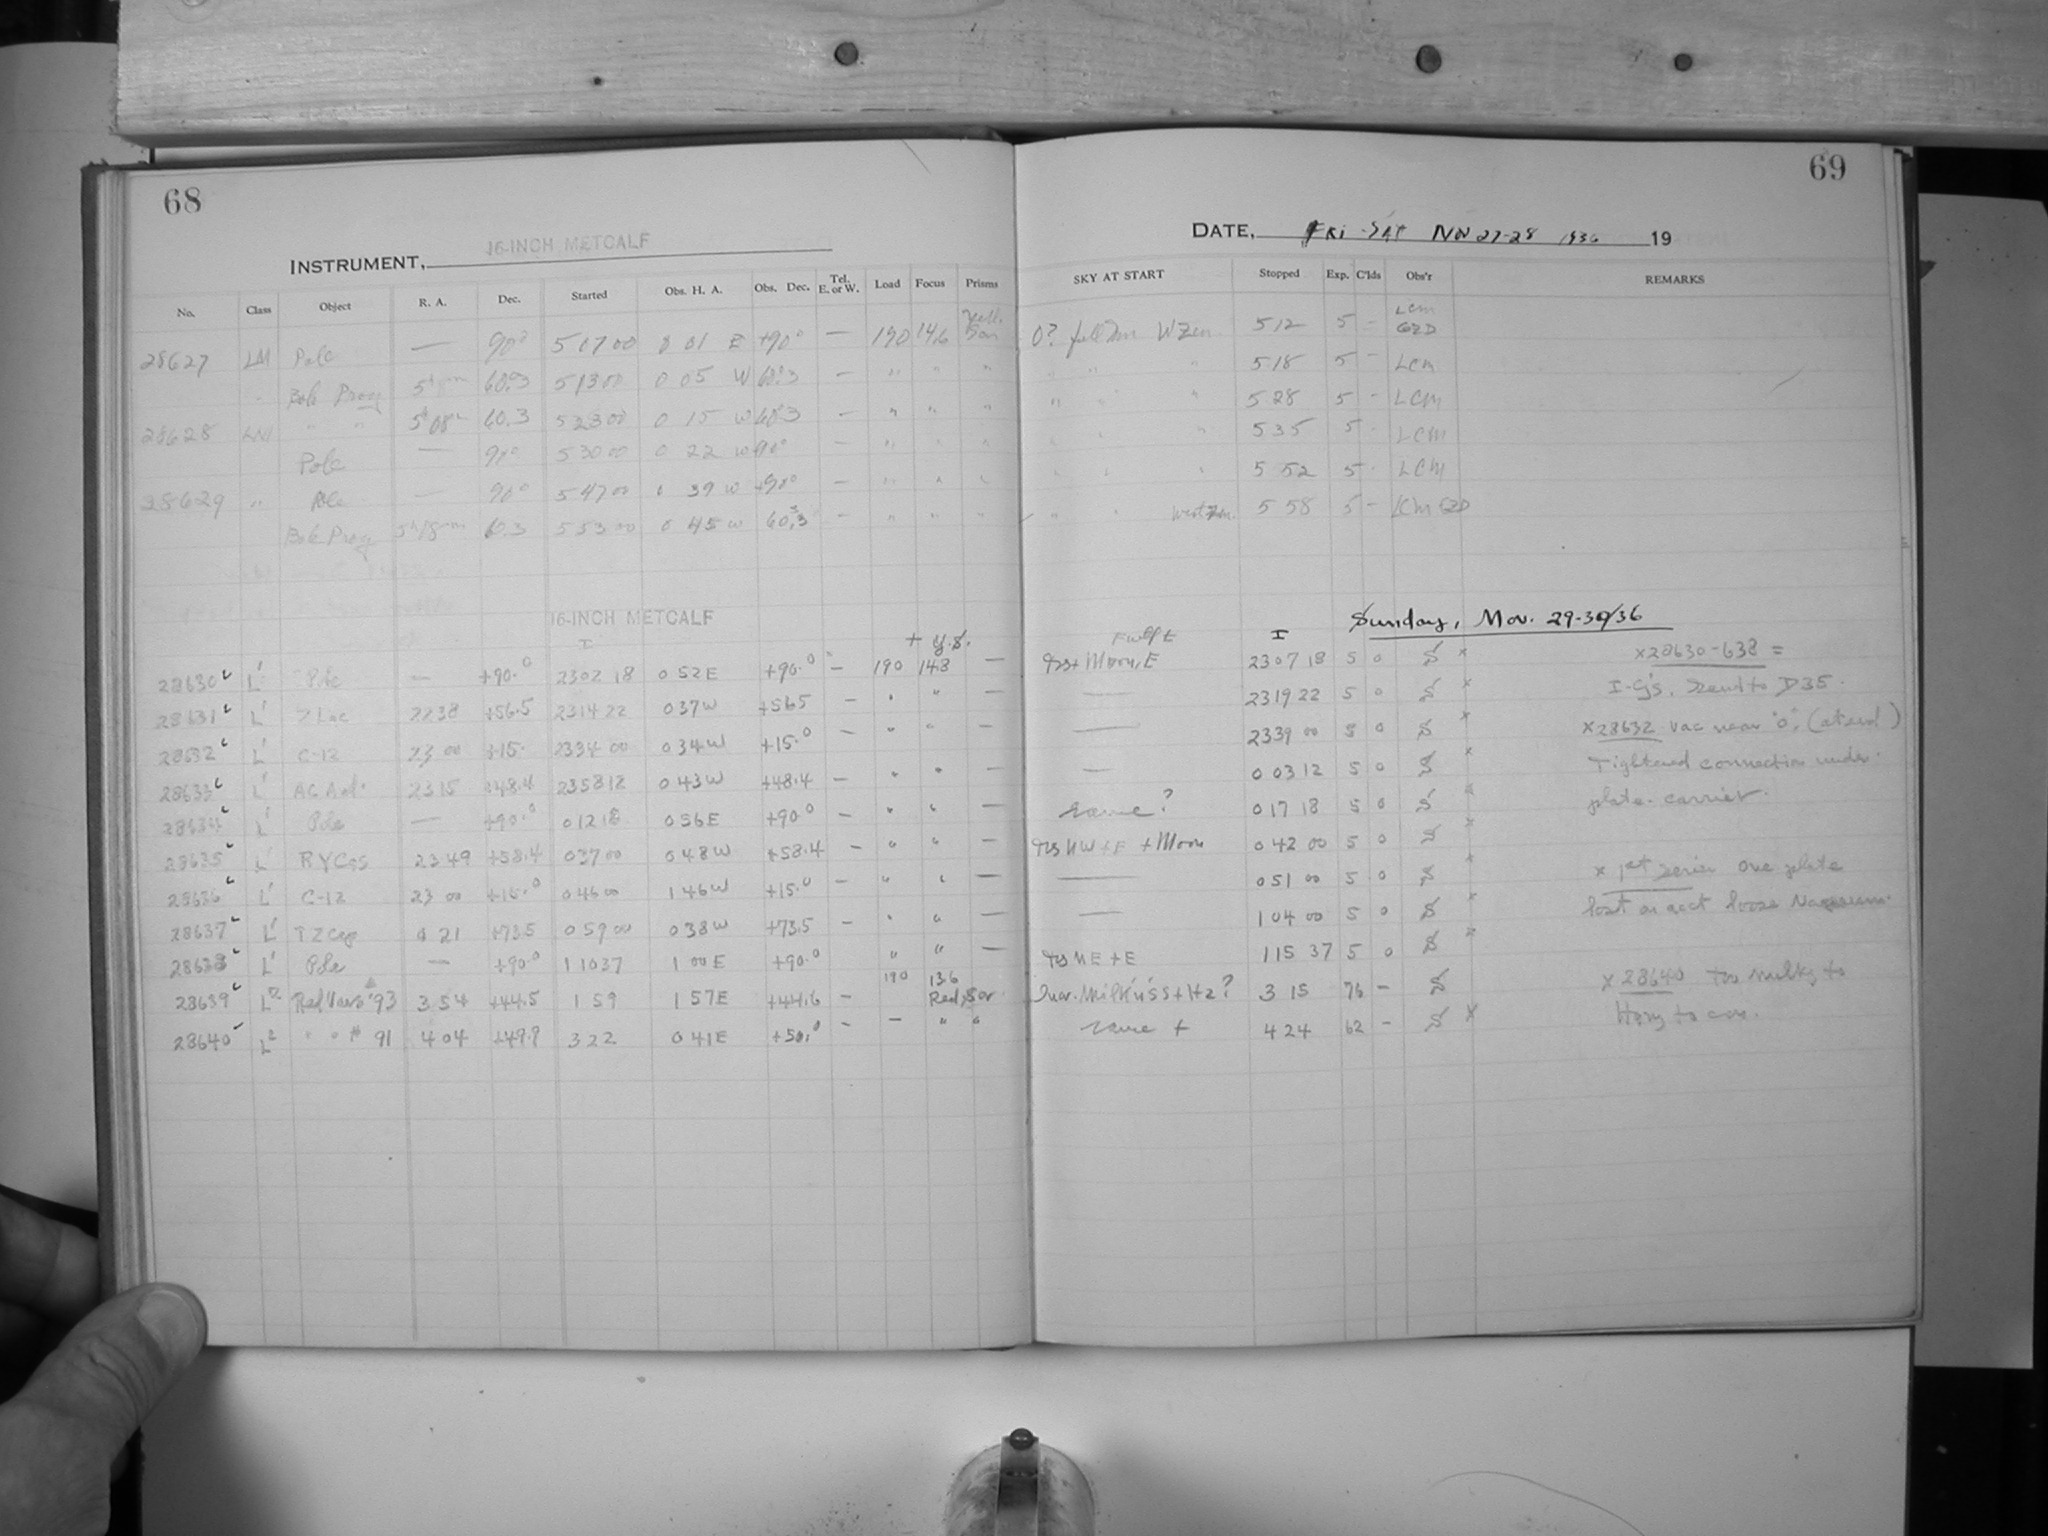 68
INSTRUMENT, 16-INCH METCALF
No. Class Object R. A. Dec. Started Obs. H. A. Obs. Dec. Tel. E. or W. Load Focus Prisms
28627 LM Pole — 90° 5 07 00 0 01 E +90° — 190 14.6
5 13 00 0 05 W 60.3 — " " "
28628 " " 5h 08m 60.3 5 23 00 0 15 W 60.3 — " " "
Pole — 90° 5 30 00 0 22 W 90° — " " "
28629 " Pole — 90° 5 47 00 0 39 W +90° — " " "
60.3 5 53 00 0 45 W 60.3 — " " "
16-INCH METCALF
I + Y.S.
28630 L' Pole — +90.0 23 02 18 0 52 E +90.0 — 190 14.8 —
28631 L' Z Lac 22 38 +56.5 23 14 22 0 37 W +56.5 — " " —
28632 L' C-12 23 00 +15. 23 34 00 0 34 W +15.0 — " " —
28633 L' 23 15 +48.4 23 58 12 0 43 W +48.4 — " " —
28634 L' Pole — +90.0 0 12 18 0 56 E +90.0 — " " —
28635 L' RY Cas 23 49 +58.4 0 37 00 0 48 W +58.4 — " " —
28636 L' C-12 23 00 +15.0 0 46 00 1 46 W +15.0 — " " —
28637 L' TZ Cep 0 21 +73.5 0 59 00 0 38 W +73.5 — " " —
28638 L' Pole — +90.0 1 10 37 1 00 E +90.0 " " —
28639 L2 Red Vars 93 3 54 +44.5 1 59 1 57 E +44.6 — 190 13.6 Red, Sor
28640 L2 " " # 91 4 04 +49.9 3 22 0 41 E +50.0 — — " "
69
DATE, Fri - Sat Nov 27-28 1936 19
SKY AT START Stopped Exp. C'lds Obs'r REMARKS
0? full Mn W Zen 5 12 5 – LCM GZD
" " " 5 18 5 – LCM
" " " 5 28 5 – LCM
" " " 5 35 5 LCM
" " " 5 52 5 LCM
" " West Zen. 5 58 5 – LCM GZD
Sunday, Nov. 29-30/36
I
+ Moon, E 23 07 18 5 0 S x x28630-638 =
— 23 19 22 5 0 S x Send to D35.
— 23 39 00 5 0 S x x28632 vac near "0", (at end)
— 0 03 12 5 0 S x Tightened connection under
same? 0 17 18 5 0 S plate-carrier.
NW + E + Moon 0 42 00 5 0 S x
— 0 51 00 5 0 S x x 1st series one plate
— 1 04 00 5 0 S x lost on acct loose
NE + E 1 15 37 5 0 S x
3 15 76 – S x 28640 Too milky to
same + 4 24 62 – S x